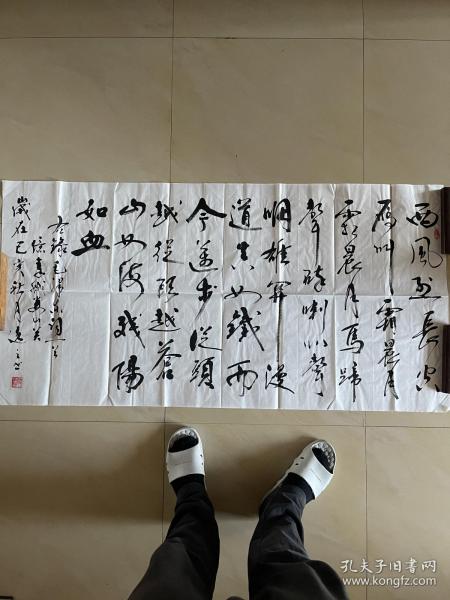 西風烈長空
雁叫霜晨月
霜晨月馬蹄
聲碎喇叭聲
咽雄關漫
道真如鐵而
今邁步從頭
越從頭越蒼
山如海殘陽
如血
右錄毛主席詞
憶秦娥婁山關
歲在己亥秋月
孔夫子旧书网
www.kongfz.com